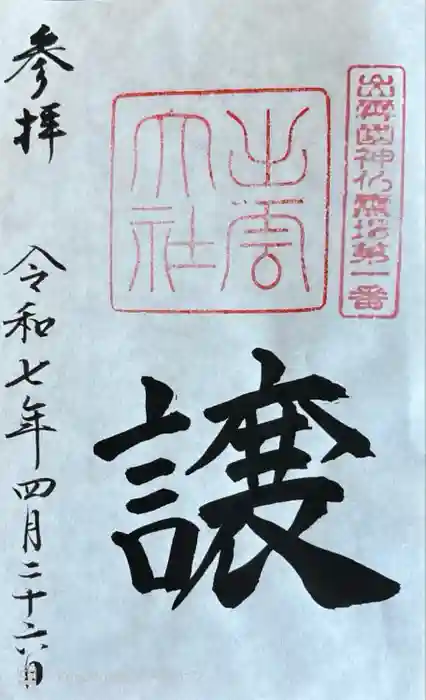 出雲國神仏霊場第一番
出雲
大社
譲
参拝
令和七年四月二十六日